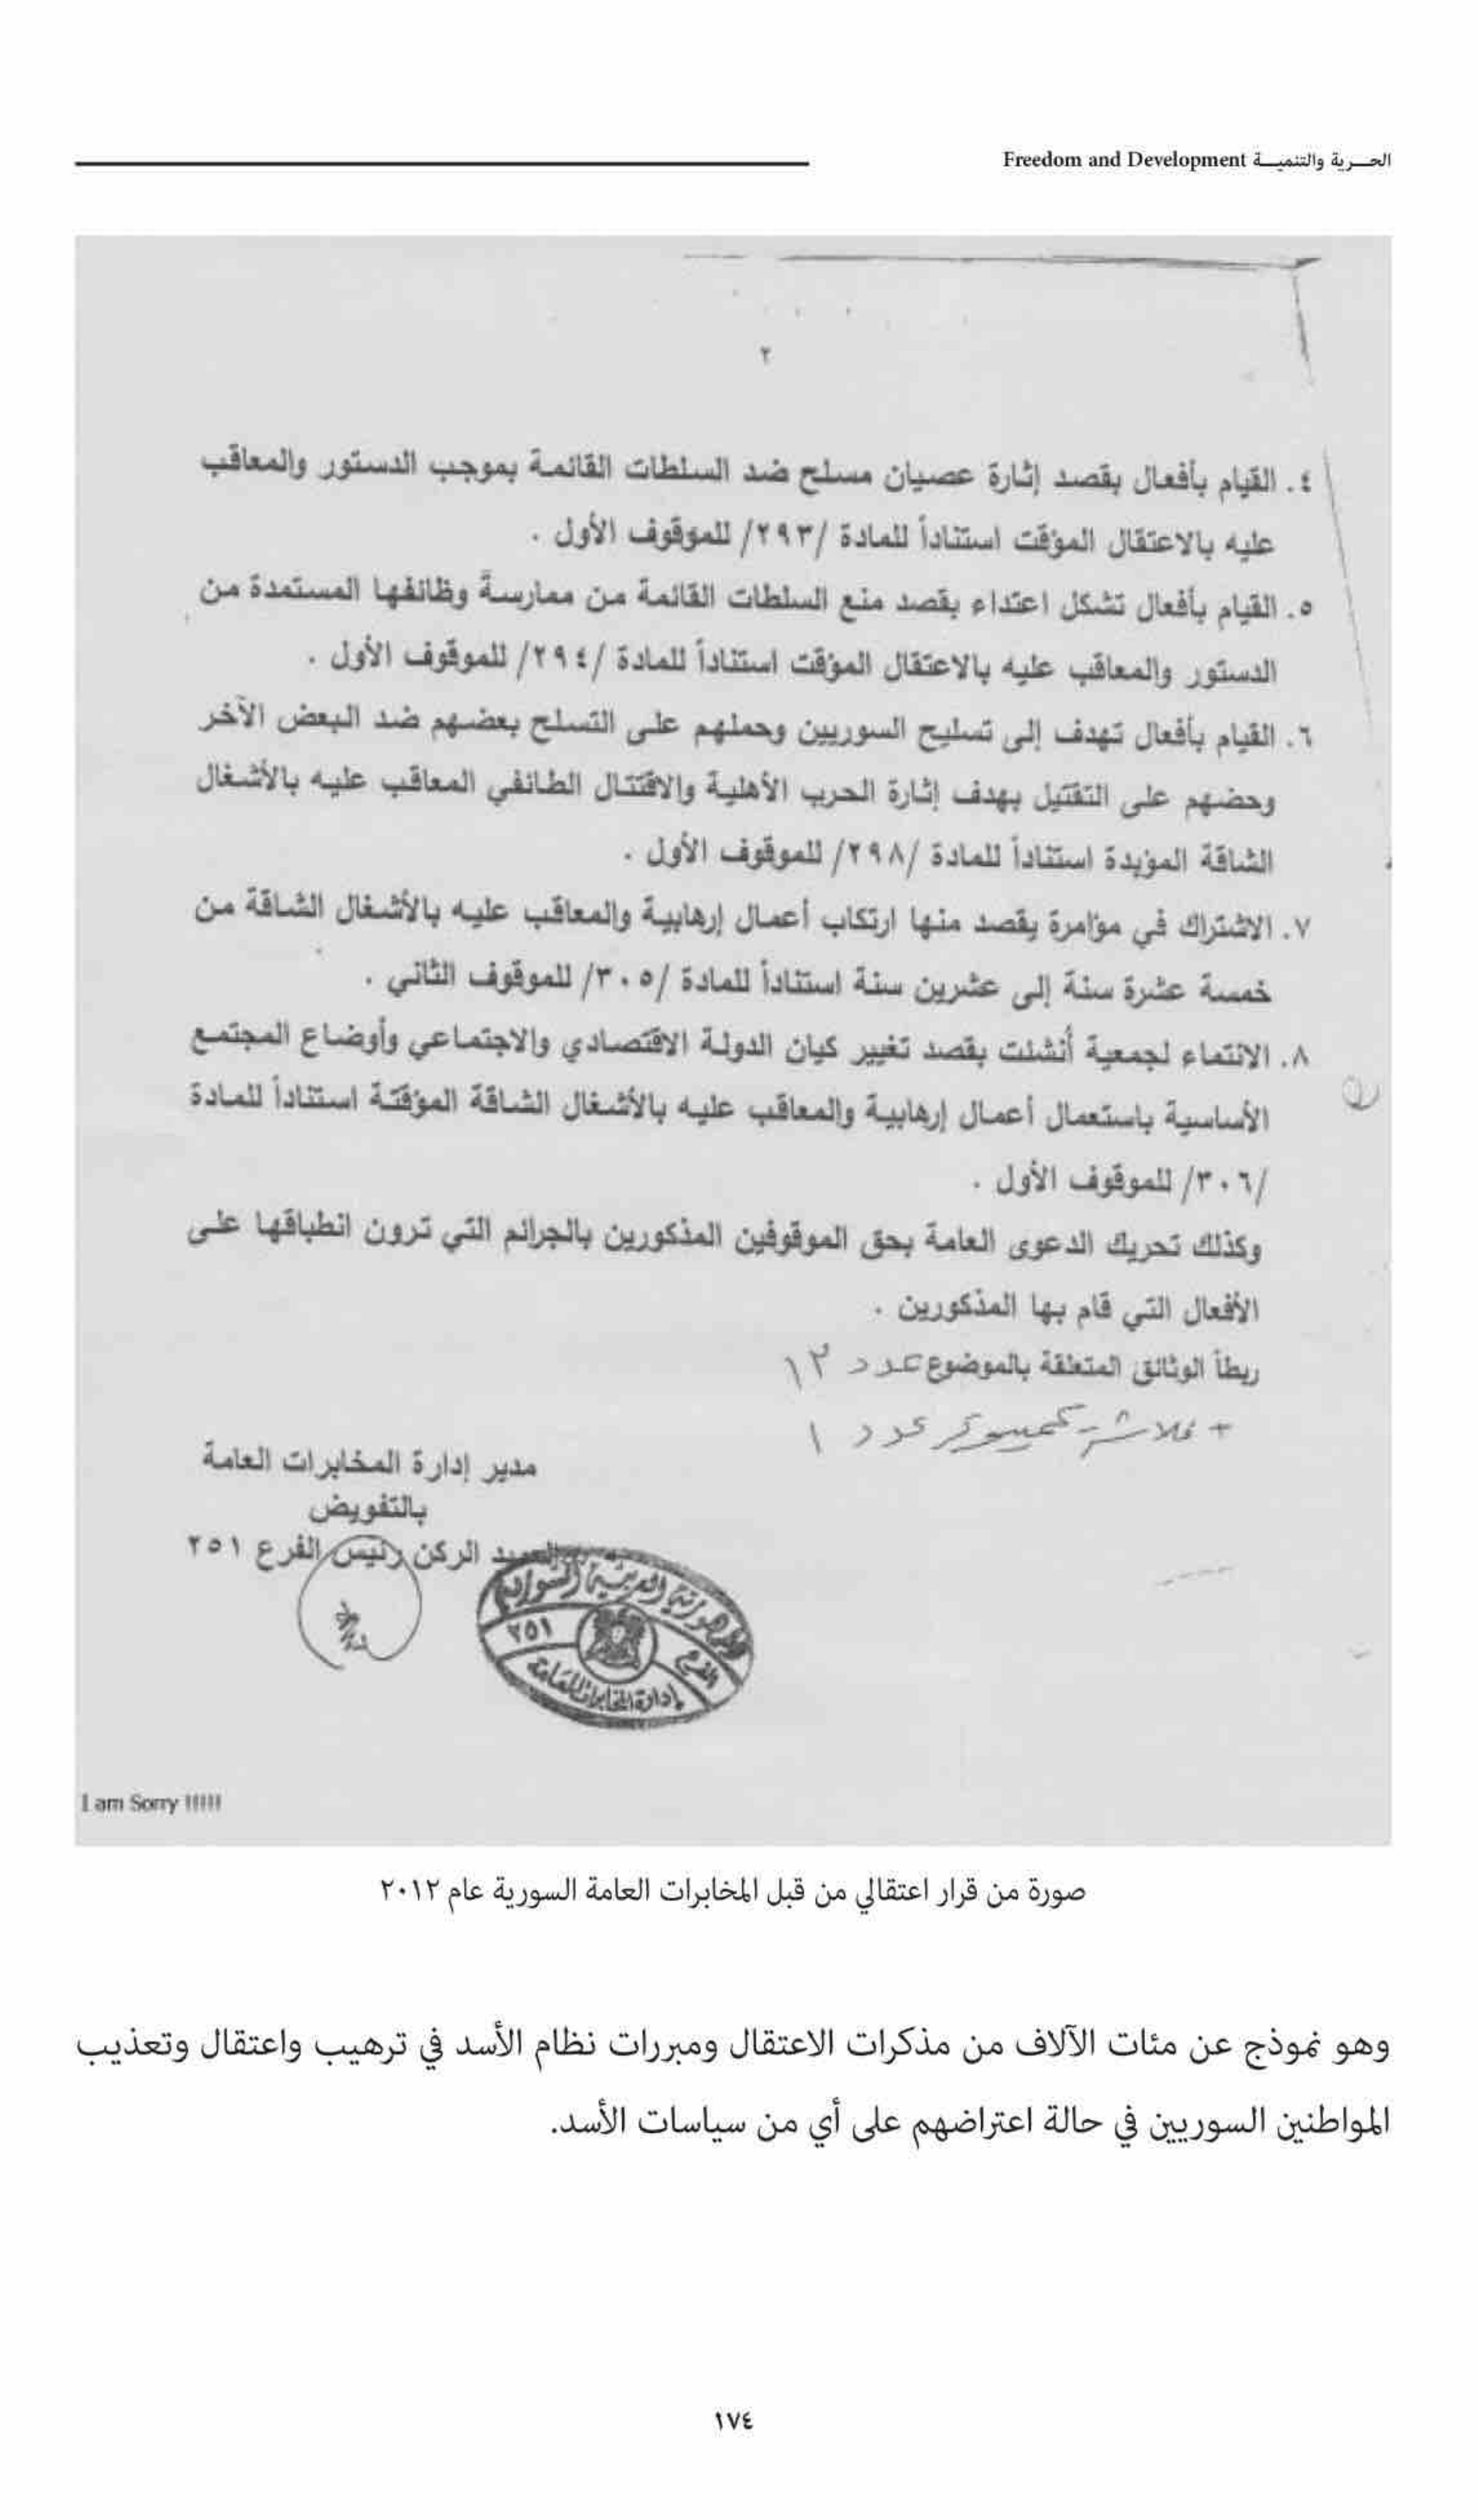 الحــرية والتنميــة Freedom and Development
٢
٤. القيام بأفعال بقصد إثارة عصيان مسلح ضد السلطات القائمة بموجب الدستور والمعاقب
عليه بالاعتقال المؤقت استناداً للمادة /٢٩٣/ للموقوف الأول .
٥. القيام بأفعال تشكل اعتداء بقصد منع السلطات القائمة من ممارسة وظائفها المستمدة من
الدستور والمعاقب عليه بالاعتقال المؤقت استناداً للمادة /٢٩٤/ للموقوف الأول .
٦. القيام بأفعال تهدف إلى تسليح السوريين وحملهم على التسلح بعضهم ضد البعض الآخر
وحضهم على التقتيل بهدف إثارة الحرب الأهلية والاقتتال الطائفي المعاقب عليه بالأشغال
الشاقة المؤبدة استناداً للمادة /٢٩٨/ للموقوف الأول .
٧. الاشتراك في مؤامرة يقصد منها ارتكاب أعمال إرهابية والمعاقب عليه بالأشغال الشاقة من
خمسة عشرة سنة إلى عشرين سنة استناداً للمادة /٣٠٥/ للموقوف الثاني .
٨. الانتماء لجمعية أنشئت بقصد تغيير كيان الدولة الاقتصادي والاجتماعي وأوضاع المجتمع
الأساسية باستعمال أعمال إرهابية والمعاقب عليه بالأشغال الشاقة المؤقتة استناداً للمادة
/٣٠٦/ للموقوف الأول .
وكذلك تحريك الدعوى العامة بحق الموقوفين المذكورين بالجرائم التي ترون انطباقها على
الأفعال التي قام بها المذكورين .
ربطاً الوثائق المتعلقة بالموضوع عدد ١٣
+ فلاشة كمبيوتر عدد ١
مدير إدارة المخابرات العامة
بالتفويض
العميد الركن رئيس الفرع ٢٥١
الجمهورية العربية السورية
الفرع ٢٥١
إدارة المخابرات العامة
I am Sorry !!!!!
صورة من قرار اعتقالي من قبل المخابرات العامة السورية عام ٢٠١٢
وهو نموذج عن مئات الآلاف من مذكرات الاعتقال ومبررات نظام الأسد في ترهيب واعتقال وتعذيب
المواطنين السوريين في حالة اعتراضهم على أي من سياسات الأسد.
١٧٤